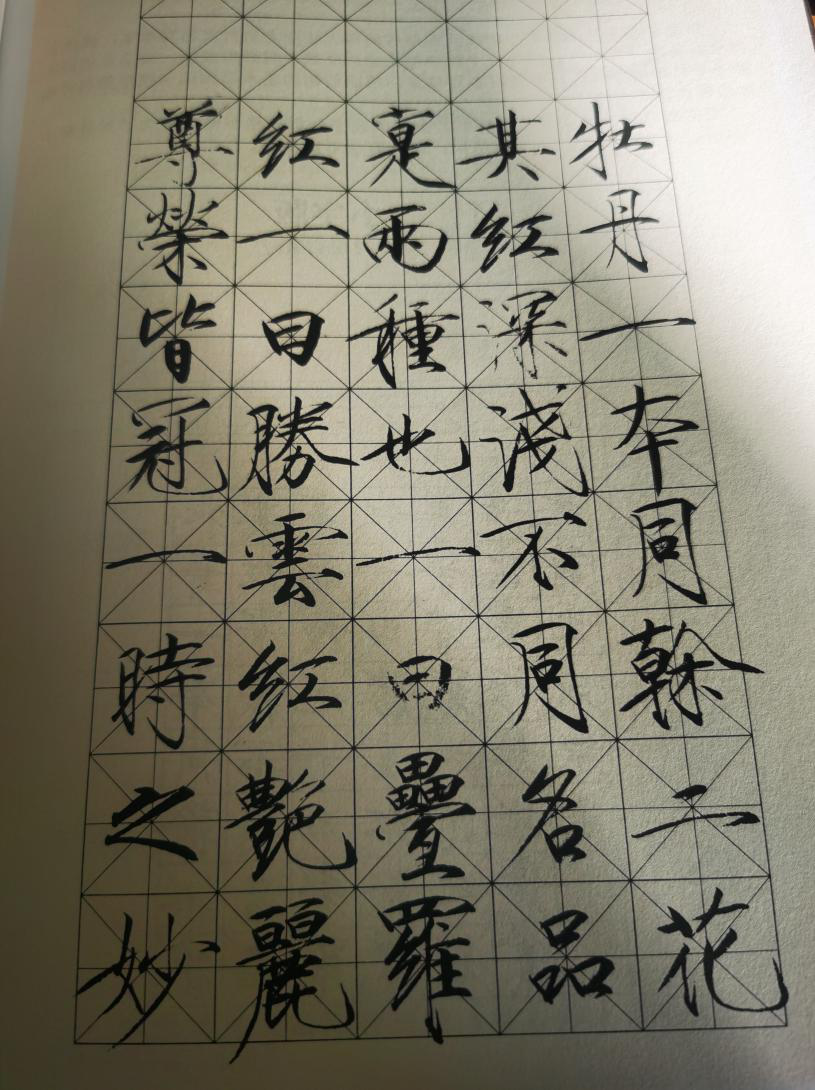 牡丹一本同榦二花
其紅深淺不同名品
寔兩種也一曰疊羅
紅一曰勝雲紅艷麗
尊榮皆冠一時之妙